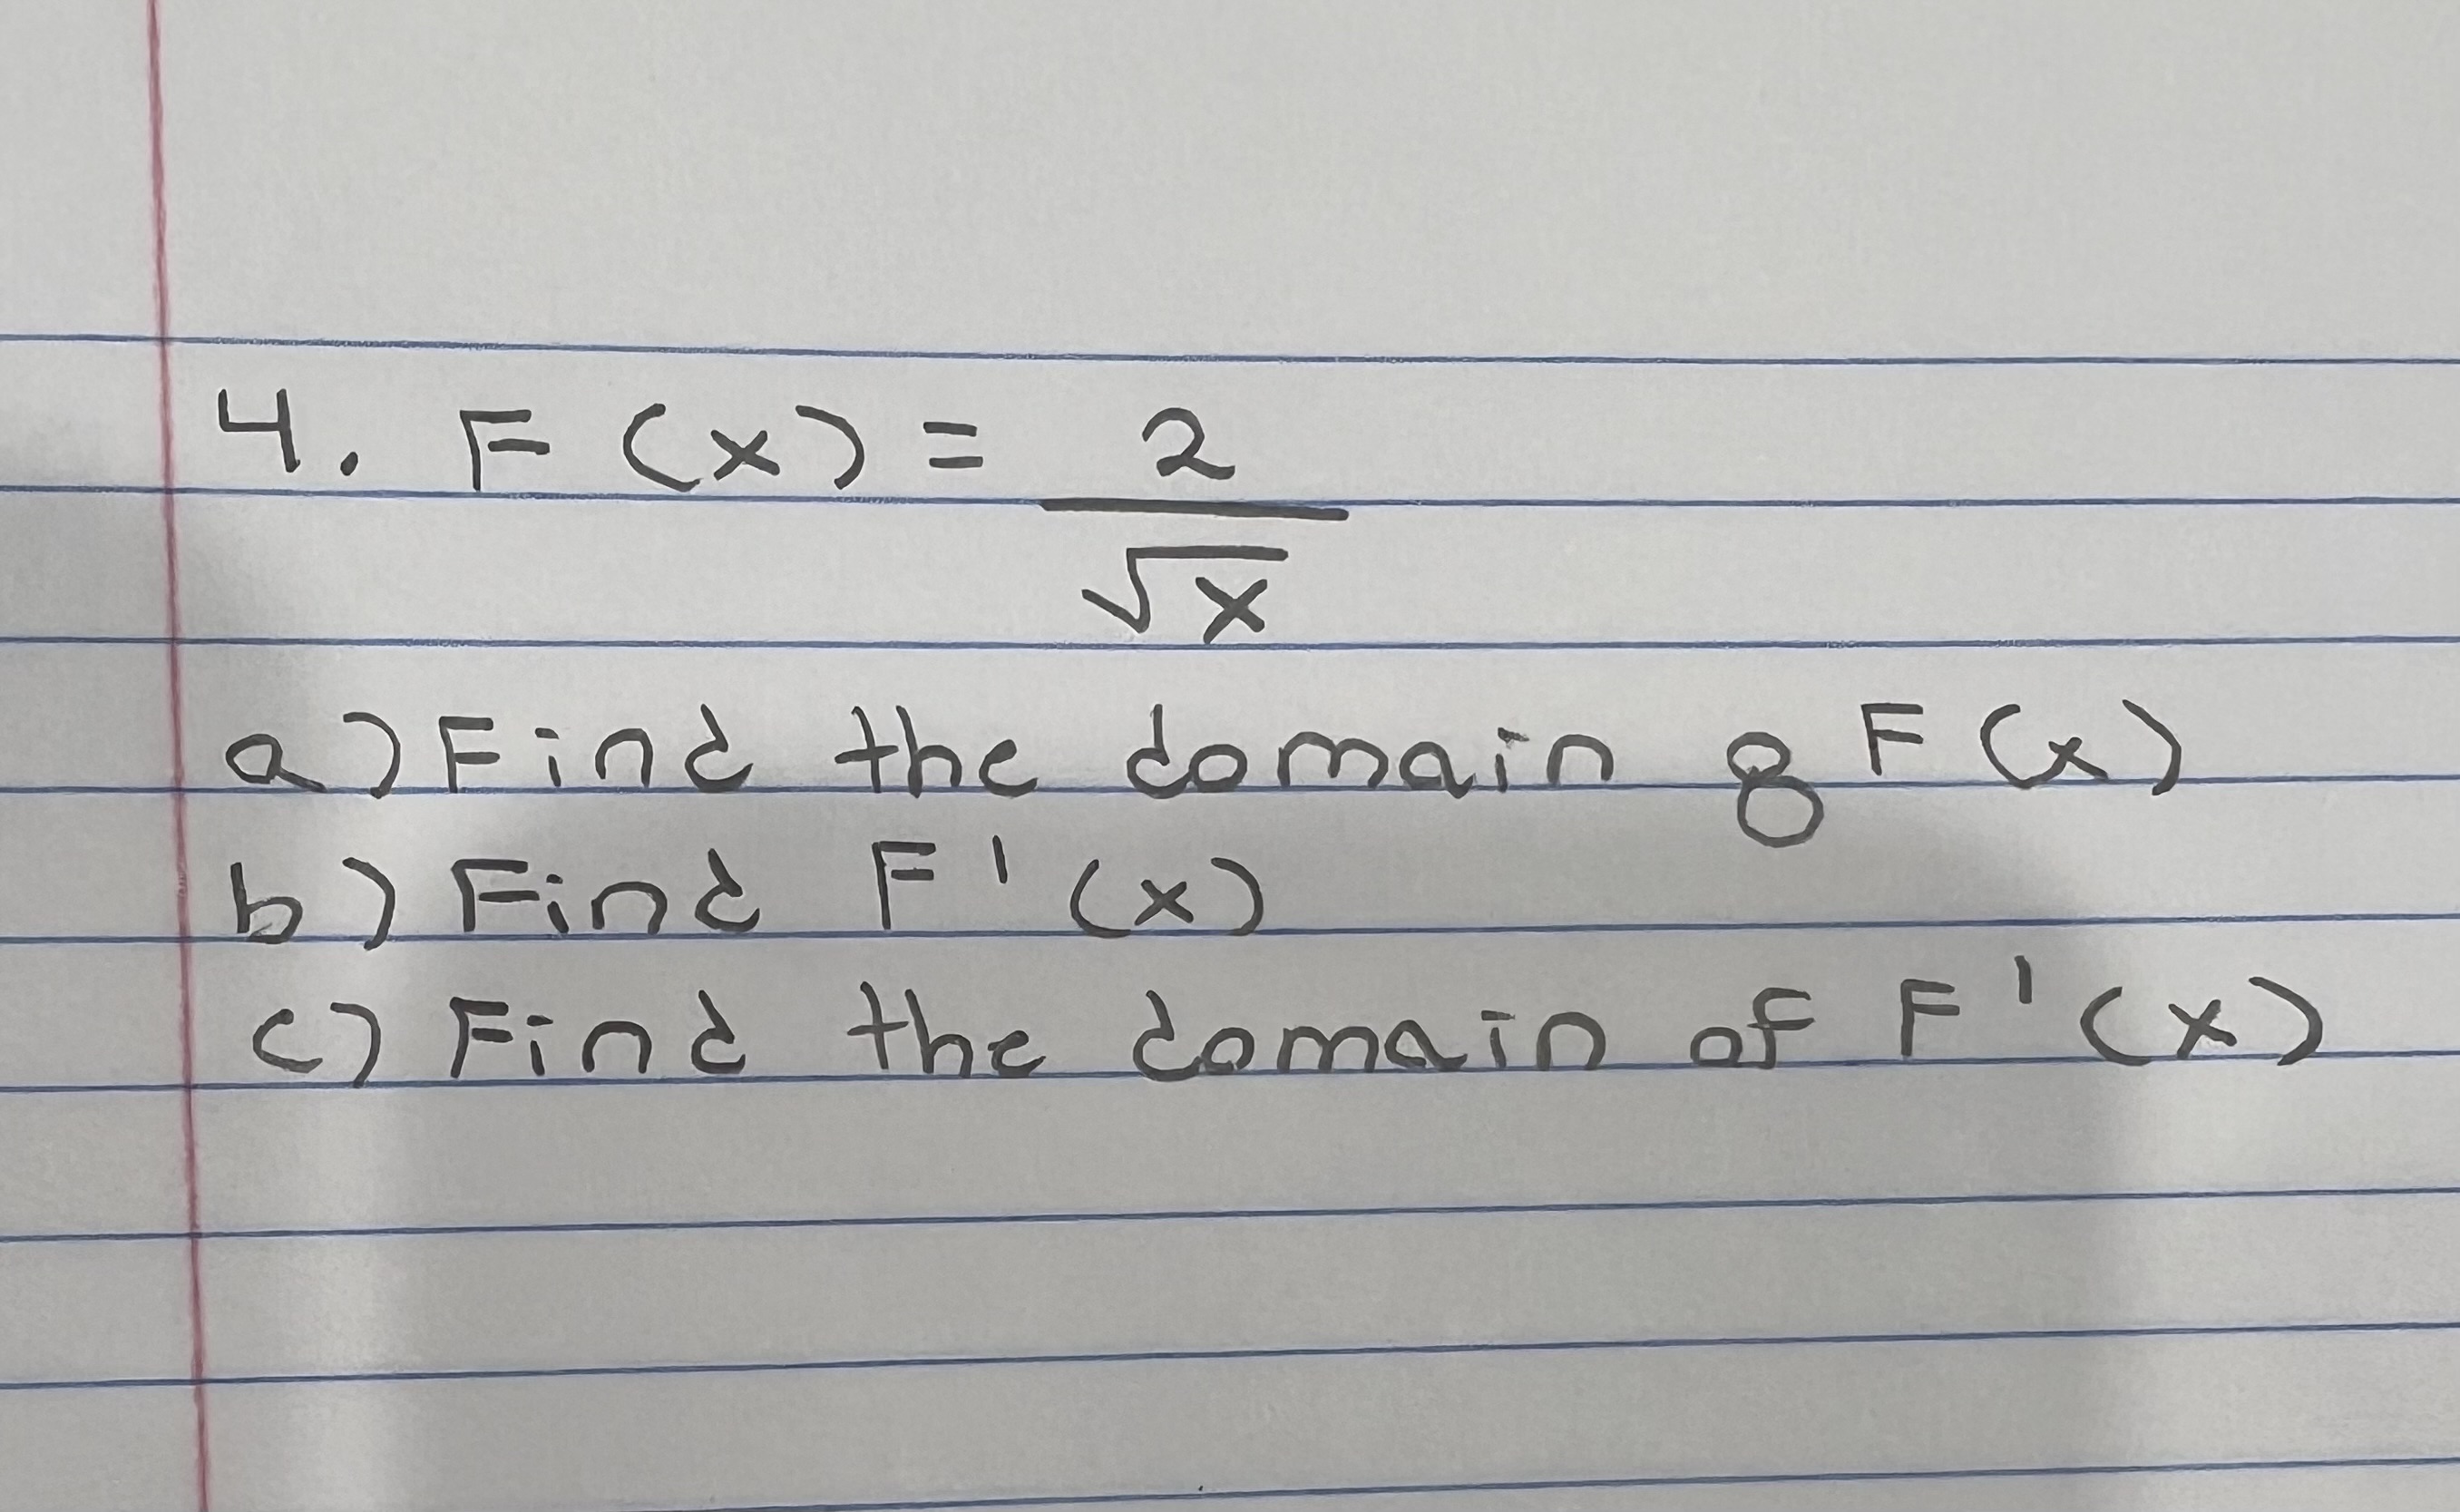 4. F(x) = 2/√x
a) Find the domain of F(x)
b) Find F'(x)
c) Find the domain of F'(x)